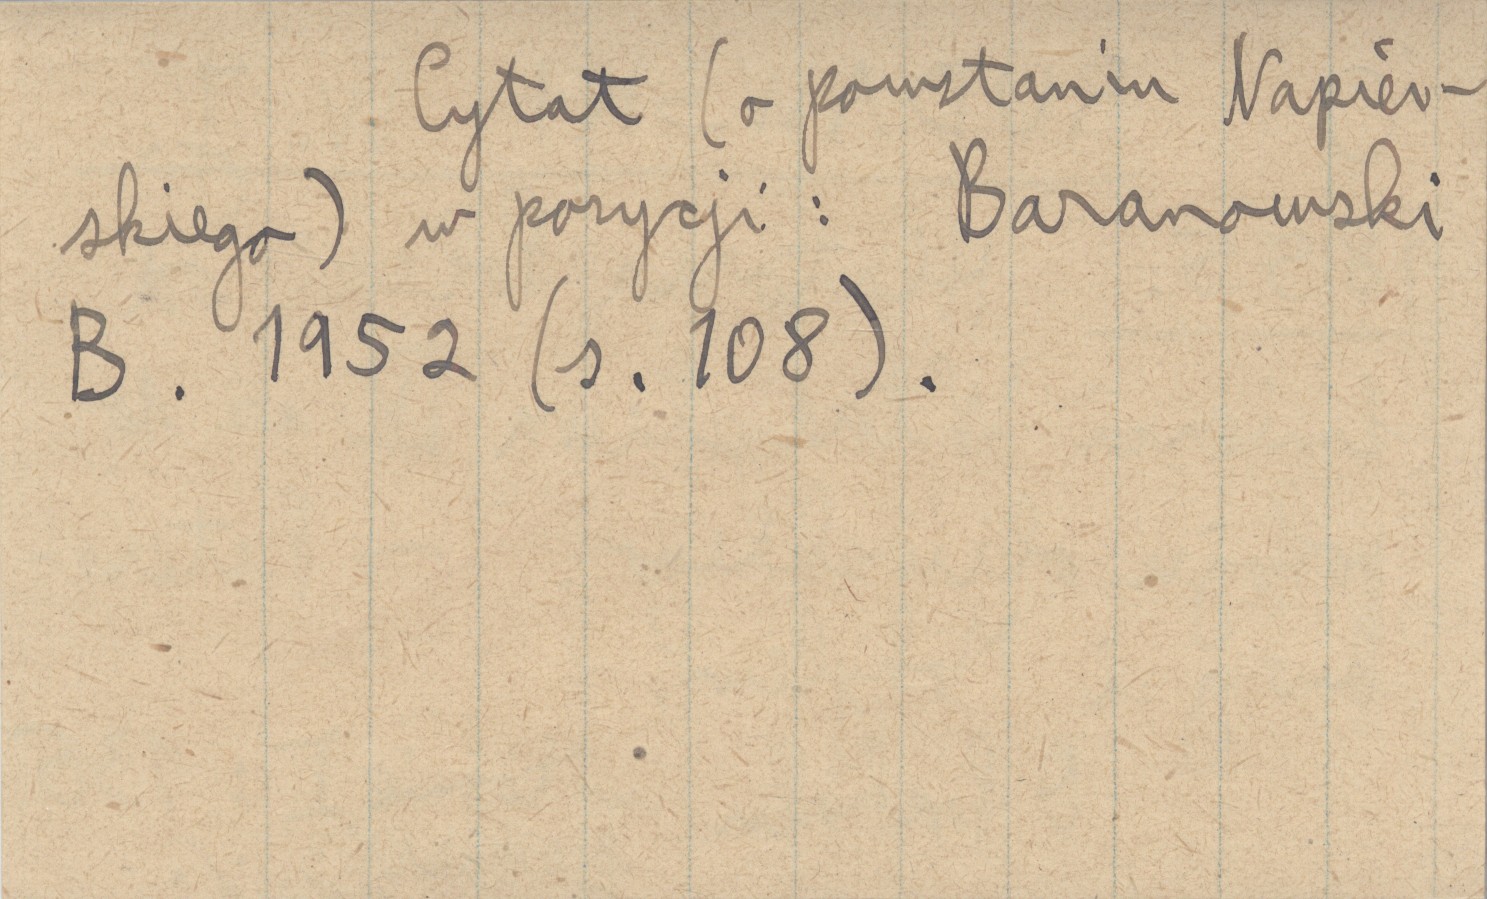 Cytat (o powstaniu Napier-
skiego) w pozycji: Baranowski
B. 1952 (s. 108).